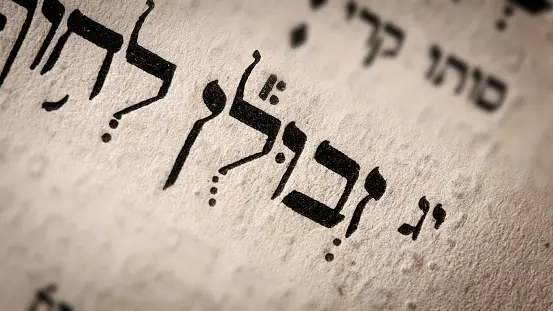 סותו קרי
יג זְבוּלֻ֕ן לְח֥וֹף